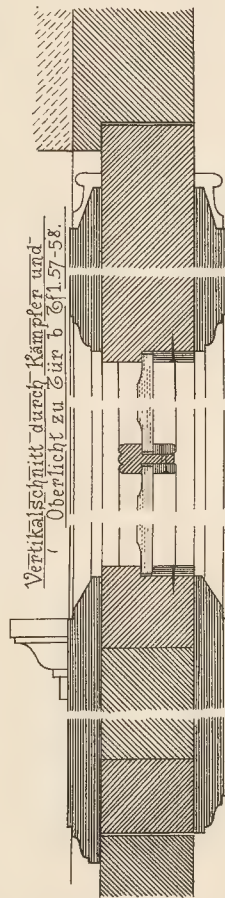 Vertikalschnitt durch Kämpfer und
Oberlicht zu Tür b Tfl. 57-58.